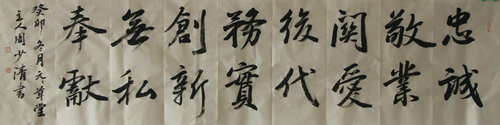 忠誠
敬業
関愛
後代
務實
創新
無私
奉獻
癸卯冬月元華堂
主人周少清書